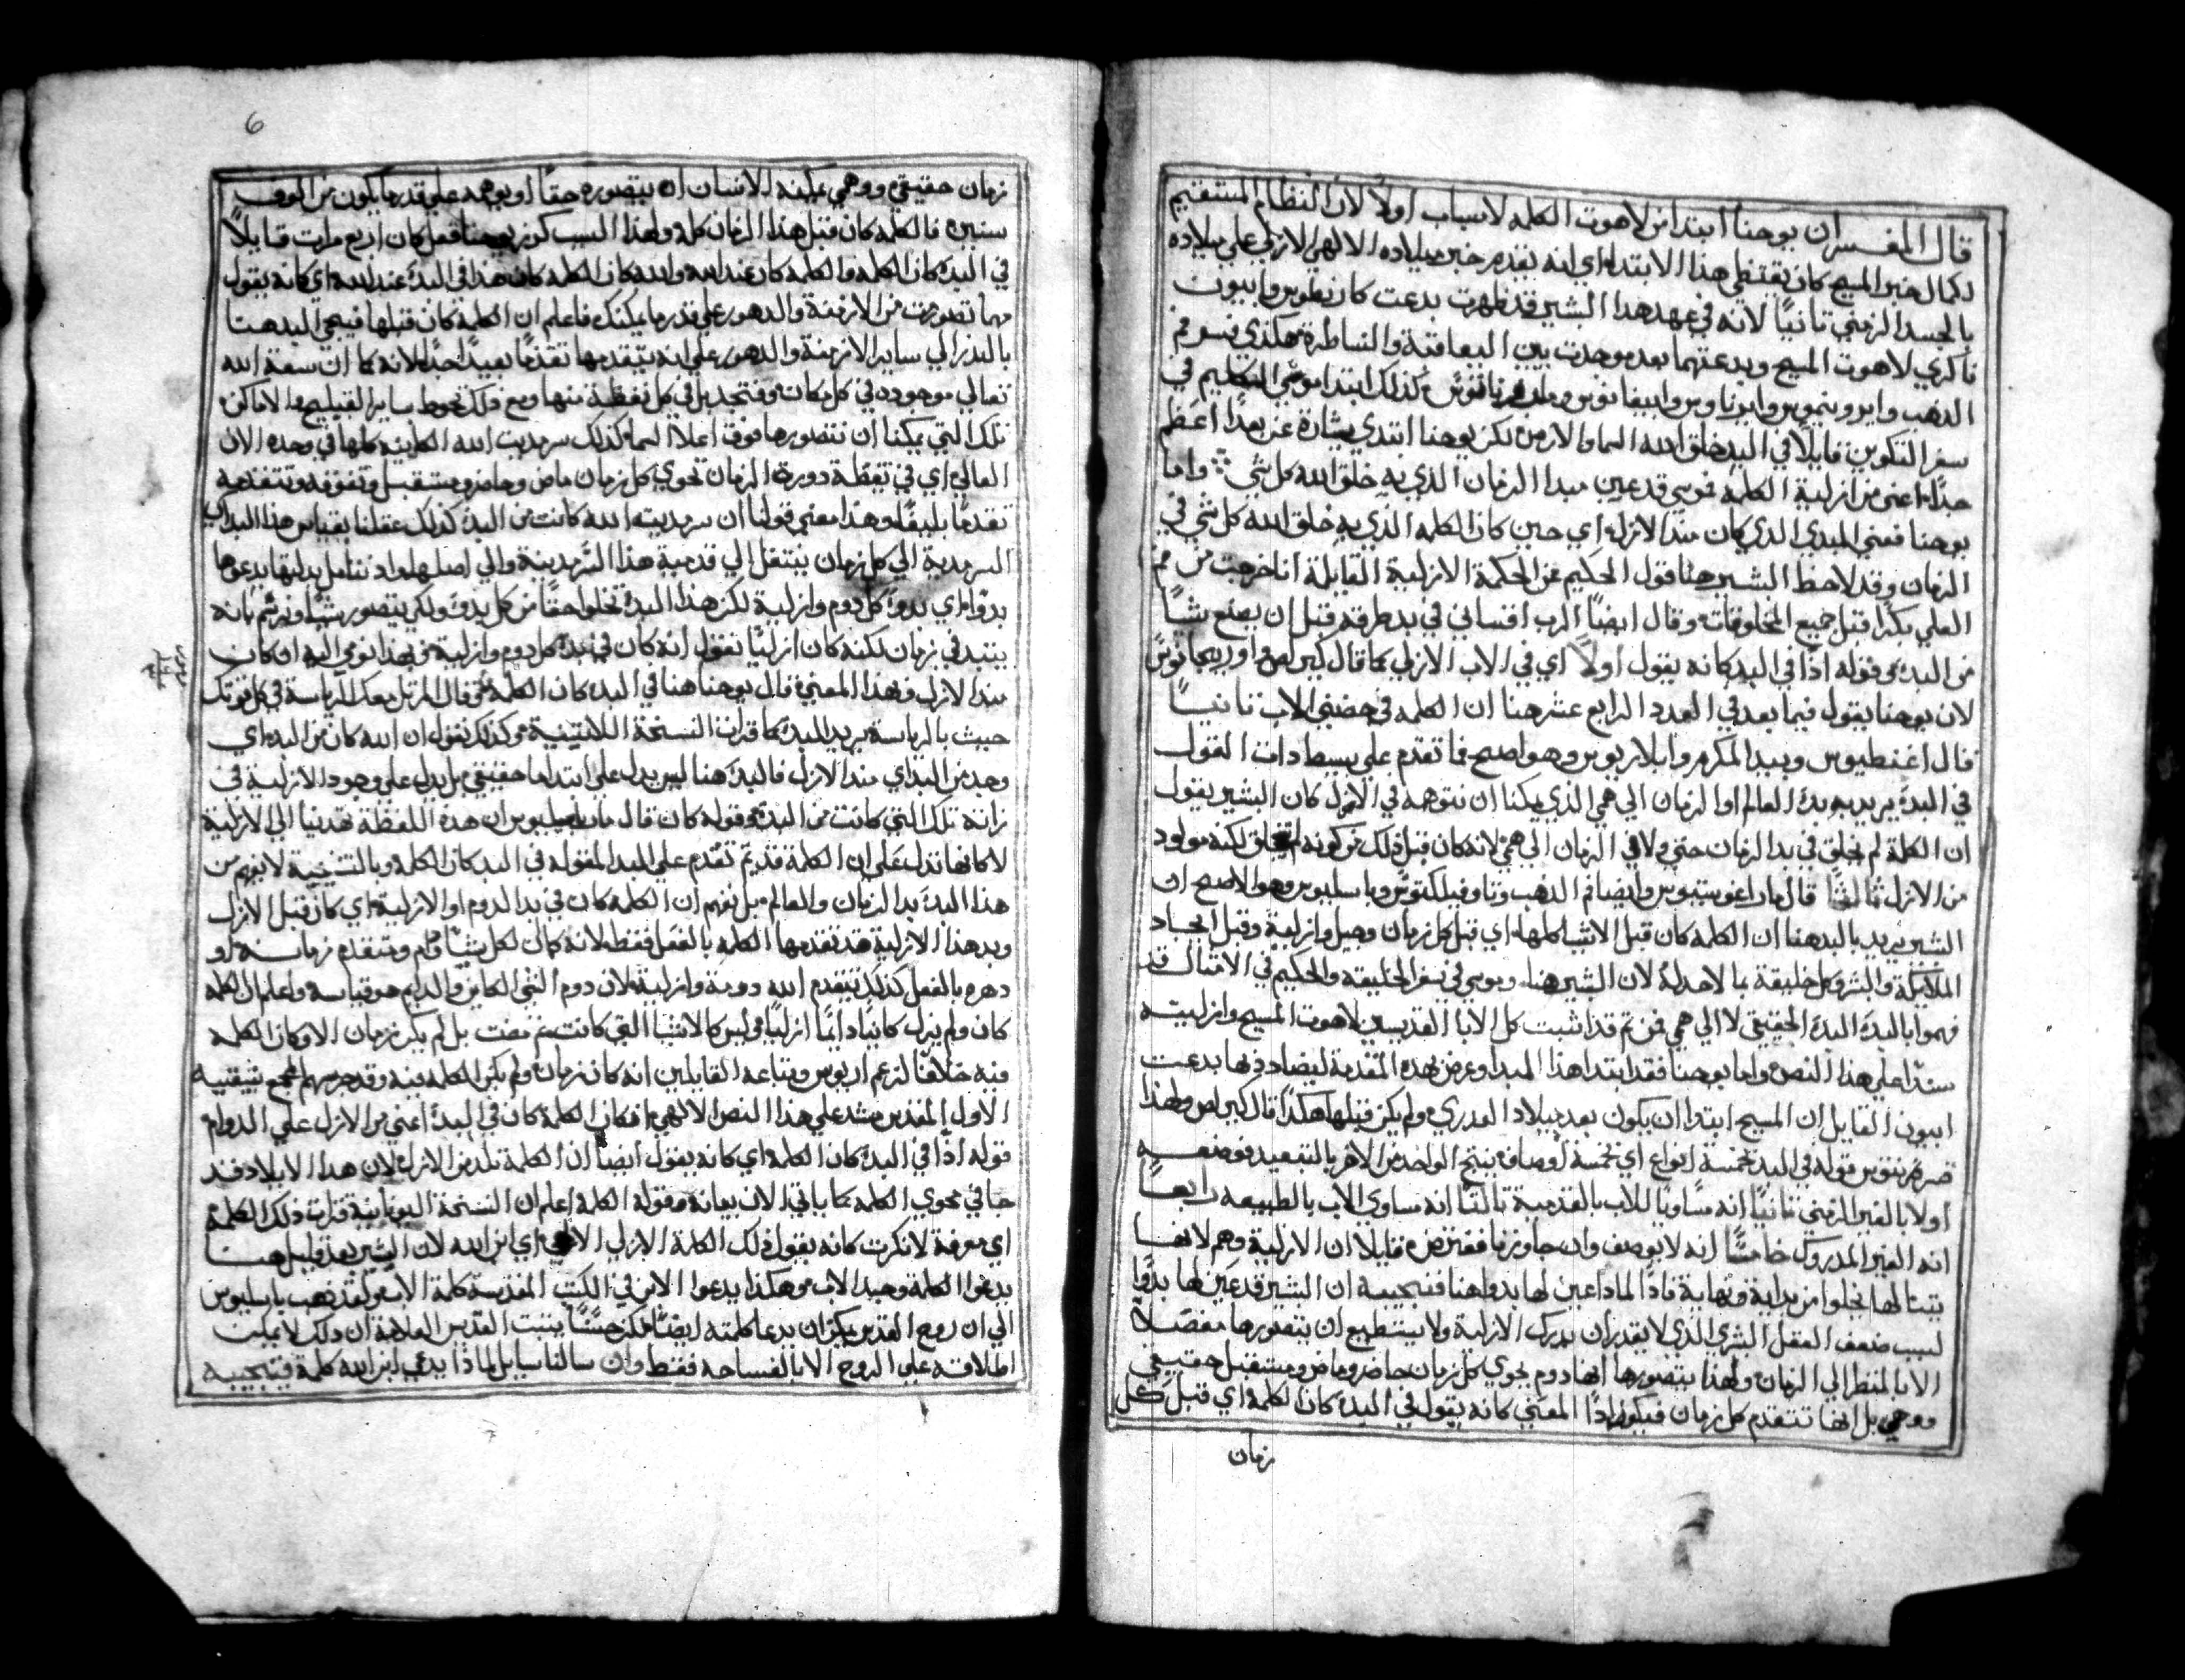 قال المفسر ان يوحنا ابتدا من لاهوت الكلمه لاسباب اولاً لان النظام المستقيم
لكمال خبر المسيح كان يقتضي هذا الابتداء اي انه يقدم خبر ميلاده الالهي الازلي علي ميلاده
بالجسد الزمني ثانيًا لانه في عهد هدا البشير قد ظهرت بدعت كارنطوس وابيون
ناكري لاهوت المسيح وبدعتهما بعده وجدت بين اليعاقبة والنساطرة هكذي فسر فم
الدهب وايرونيموس وابيفانيوس كذلك ابتدا موسي الكليم في
سفر التكوين قايلاً في البدء خلق الله السما والارض لكن يوحنا ابتدي بشارة عن بدءٍ اعظم
جدًا اعني من ازلية الكلمه فموسي قد عين مبدا الزمان الذي به خلق الله كل شي واما
يوحنا فعني المبدي الدي كان مند الازل اي حين كان الكلمه الذي به خلق الله كل شي في
الزمان وقد لاحظ البشير هنا قول الحكيم عن الحكمة الازلية القايلة انا خرجت من فم
العلي بكرًا قبل جميع المخلوقات وقال ايضًا الرب اقتناني في بدء طرقه قبل ان يصنع شيًا
من البدء وقوله اذًا في البدء كانه يقول اولاً اي في الاب الازلي كما قال كيرلص واوريجانوس
لان يوحنا يقول فيما بعد في العدد الرابع عشر هنا ان الكلمه في حضن الاب ثانيًا
قال اغنطيوس وبيدا المكرم وايلاريوس وهو اصح مما تقدم علي بسيط دات القول
في البدء يريد به بدء العالم او الزمان الي هي الذي يمكنا ان نتوهمه في الازل كان البشير يقول
ان الكلمة لم يخلق في بدا الزمان حتي ولا في الزمان الي هي لانه كان قبل ذلك من كونه لم يخلق لكنه مولود
من الازل ثالثًا قال مار اغوستينوس وايضا فم الذهب وتاوفيلكتوس وباسيليوس وهو الاصح ان
البشير يريد بالبدء هنا ان الكلمه كان قبل الاشيا كلها اي قبل كل زمان وجيل وازلية وقبل ايجاد
الملايكة والبشر وكل خليقة بما لاحد له لان البشير هنا وموسي في سفر الخليقه والحكيم في الامثال قد
فهموا بالبدء البدء الحقيقي لا الي هي فمن ثم قد اثبت كل الابا القديسين لاهوت المسيح وازليته
سندًا علي هذا النص واما يوحنا فقد ابتدا هذا المبدا وعرض بهده المقدمة ليضادد فيها بدعت
ابيون القايل ان المسيح ابتدا ان يكون بعد ميلاد العدري ولم يكن قبلها هكذا قال كيرلص ولهذا
قوله في البدء بخمسة انواع اي بخمسة اوصاف ينتج الواحد من الاخر بالتتبعيد فوصفه
اولاً بالغير الزمني ثانيًا انه مساويًا للاب بالقدمية ثالثًا انه مساوي الاب بالطبيعه رابعًا
انه الغير المدروك خامسًا انه لا يوصف وان جاوزنا معترض قايلاً ان الازلية وهم لا نفسا
يتبنا لها نخلوا من بداية ونهاية فاذًا لماذا عين لها بدواهنا فنجيبه ان البشير قد عين لها بدوًا
لسبب ضعف العقل البشري الدي لا يقدر ان يدرك الازلية ولا يستطيع ان يتصورها مفصلاً
الا بالنظر الي الزمان ولهذا يتصورها انها دوم يحوي كل زمان حاضر وماض ومستقبل حقيقي
ووهمي بل انها تتقدم كل زمان فيكون اذًا المعني كانه يقول في البدء كان الكلمه اي قبل كل
زمان
6
زمان حقيقي ووهمي يمكنه الانسان ان يتصوره حقًا او يوهمه علي قدر ما يكون من الوف
سنين فالكلمه كان قبل هذا الزمان كله ولهذا السبب كرز يوحنا فعل كان اربع مرات قايلاً
في البدء كان الكلمه والكلمه كان عند الله والله كان الكلمه كان هذا في البدء عند الله اي كانه يقول
مهما تصورت من الازمنة والدهور علي قدر ما يمكنك فاعلم ان الكلمه كان قبلها فيجي البدء هنا
بالنظر الي ساير الازمنة والدهور علي انه يتقدمها تقدمًا بعيدًا جدًا لانه كما ان سعة الله
تعالي موجوده في كل مكان وفتجد بل في كل نقطة منها ومع ذلك تحوط ساير القبليح والاماكن
تلك التي يمكنا ان نتصورها فوق اعلا السما كذلك سرمديت الله الكاينه كلها في وحده الان
العالي اي في نقطة دورة الزمان تحوي كل زمان ماض وحاضر ومستقبل وتفوقه وتتقدمه
تقدمًا بليغًا وهذا معني قولنا ان سرمديته الله كانت من البدء كذلك عقلنا بقياس هذا البدء اي
السرمدية الي كل زمان ينتقل الي قدمية هذا السرمدينة والي اصلها واذ نتامل بداتها يدعوها
بدوًا اي بدو كل دوم وازلية لكن هذا البدء تخلوا حقًا من كل بدو ولكي يتصور شيًا ونرسم بانه
يبتدي في زمان لكنه كان ازليًا نقول انه كان في بدء كل دوم وازلية فهذا نومي اليه ان كان
مند الازل فبهذا المعني قال يوحنا هنا في البدء كان الكلمه قال المرتل معك الرياسة في كل قوتك
حيث بالرياسة يريد البدء كما قرات النسخة اللاتينية وكذلك نقول ان الله كان من البدء اي
وجد من البدء اي مند الازل فالبدء هنا ليس يدل علي ابتداء ما حقيقي بل يدل علي وجود الازلية في
ذاته تلك التي كانت من البدء وقوله كان قال باسيليوس ان هده اللفظة تهدينا الي الازلية
لا كانها تدل علي ان الكلمة قديم تقدم علي البدء المقوله في البدء كان الكلمه وبالنتيجة لا نفهم من
هذا البدء بدا الزمان والعالم بل نفهم ان الكلمه كان في بدا الدوم او الازلية اي كان قبل الازل
وبدء هذا الازلية قد تقدمها الكلمه بالفعل فقط لانه كان لكل شيًا دوم ويتقدم زمانه او
دهره بالفعل كذلك يتقدم الله دومة وازلية لان دوم الشي الكاين والدايم هو قياسه واعلم ان الكلمه
كان ولم يزل كاينًا دايمًا ازليًا وليس كالاشيا التي كانت ثم مضت بل لم يكن زمان الا وكان الكلمه
فيه خلافًا لزعم اريوس وتباعه القايلين انه كان زمان ولم يكن الكلمه فيه وقد حرمهم المجمع نيقيه
الاول المقدس مستند علي هذا النص الالهي فكان الكلمة كان في البدء اعني من الازل علي الدوام
قوله اذًا في البدء كان الكلمه اي كانه يقول ايضًا ان الكلمة تلد من الازل لان هدا الايلاد قد
جا في محوي الكلمه كما ياتي الان بيانه وقوله الكلمة اعلم ان النسخة اليونانية قرات ذلك الكلمه
اي معرفة لا نكرت كانه يقول ذلك الكلمة الازلي الالهي اي ابن الله لان البشير بعد قليل هنا
يدعوا الكلمة وحيد الاب وهكذا يدعوا الابن في الكتب المقدسة كلمة الاب ولقد ذهب باسيليوس
الي ان روح القدس يمكن ان يدعا كلمته ايضًا لكن حسنًا يثبت القديس العلامة ان ذلك لا يمكن
اطلاقه علي الروح الا بالفساحه فقط وان سالنا سايل لماذا يدعي ابن الله كلمة فنجيبه